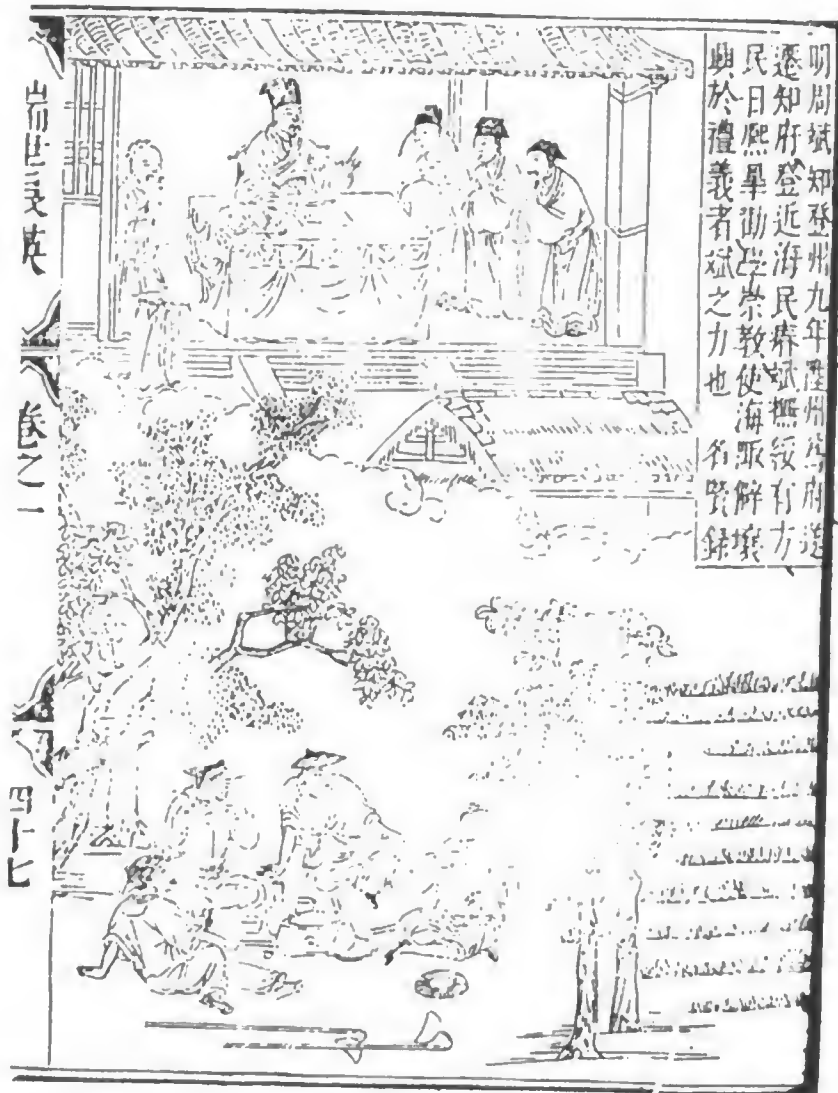 明周斌知登州九年陞州為府遂
遷知府登近海民瘠斌撫綏有方
民日熙皞勸學崇教使海陬僻壤
興於禮義者斌之力也　名賢錄
瑞世良英
卷之二
四十七